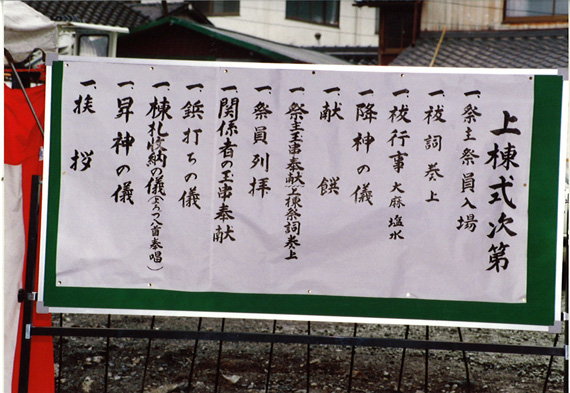 上棟式次第
一、祭主祭員入場
一、祓詞奏上
一、祓行事 大麻 塩水
一、降神の儀
一、献饌
一、祭主玉串奉献上棟祭詞奏上
一、祭員列拝
一、関係者の玉串奉献
一、鋲打ちの儀
一、棟札收納の儀(まろづ八首奉唱)
一、昇神の儀
一、挨拶